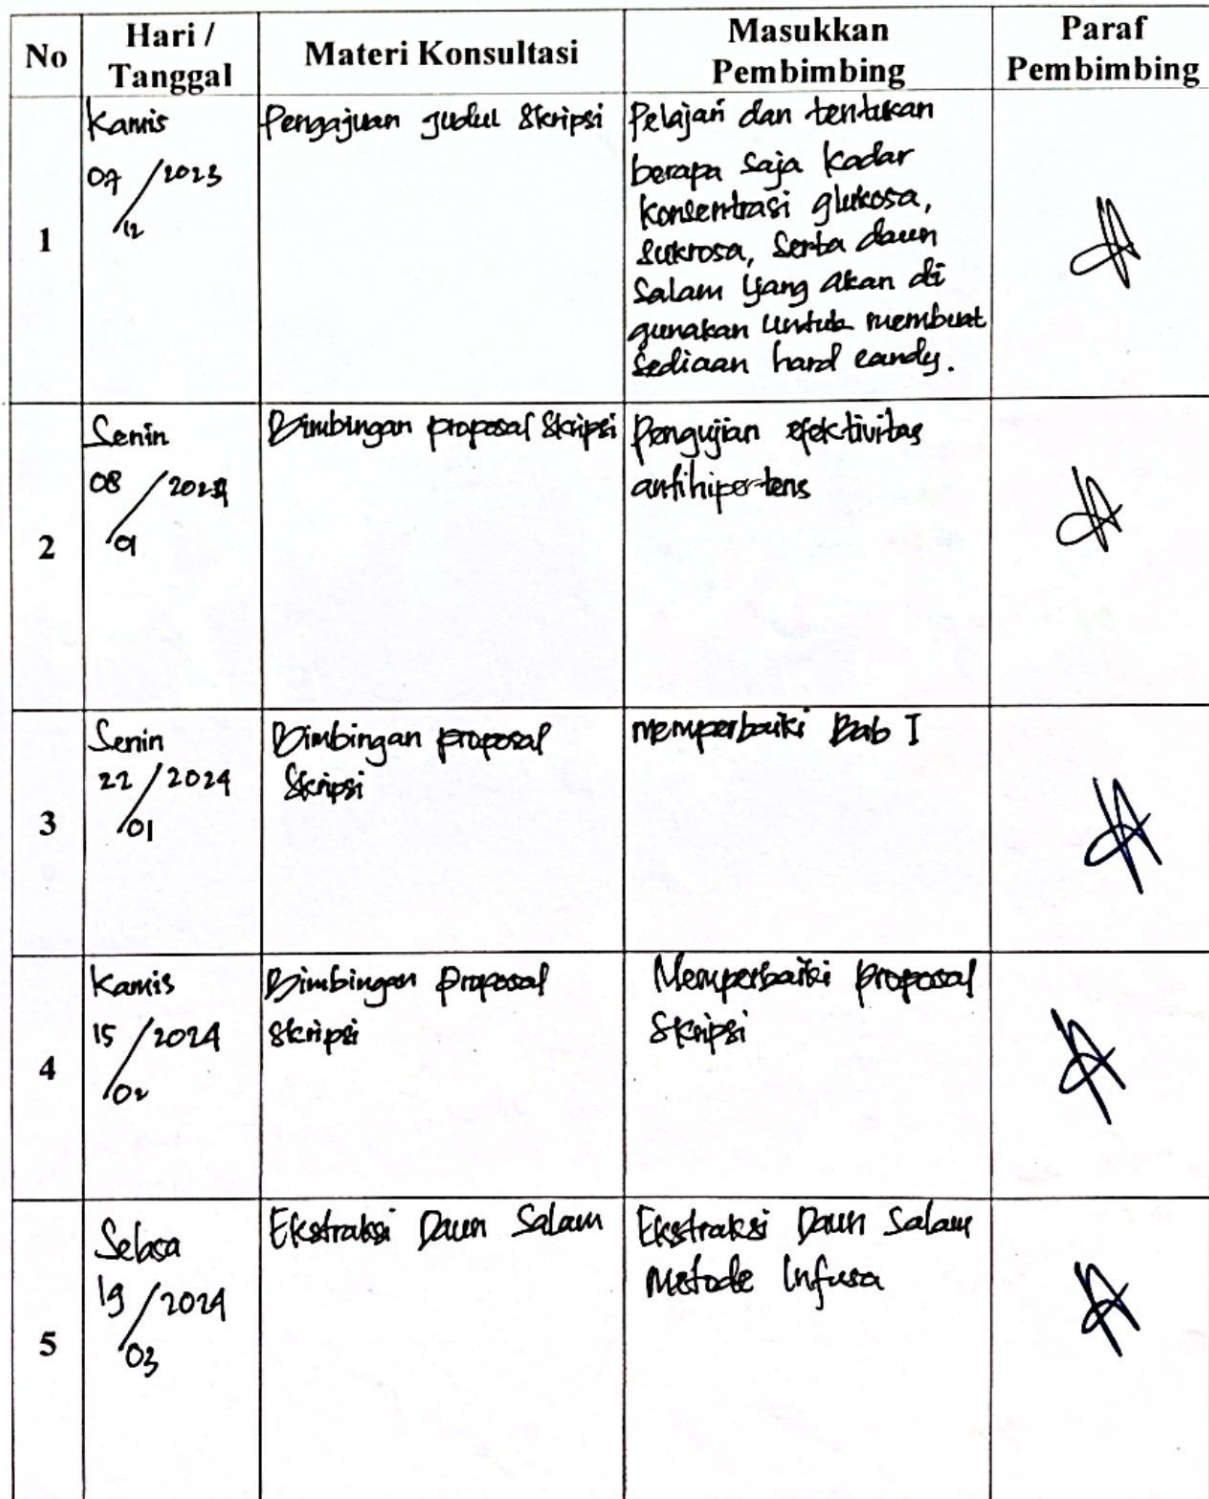 No
Hari /
Tanggal
Materi Konsultasi
Masukkan
Pembimbing
Paraf
Pembimbing
1
Kamis
07/12/2023
Pengajuan Judul Skripsi
Pelajari dan tentukan
berapa saja kadar
konsentrasi glukosa,
sukrosa, serta daun
salam yang akan di
gunakan untuk membuat
sediaan hard candy.
2
Senin
08/01/2024
Bimbingan proposal Skripsi
Pengujian efektivitas
antihipertens
3
Senin
22/01/2024
Bimbingan proposal
Skripsi
memperbaiki Bab I
4
Kamis
15/02/2024
Bimbingan Proposal
Skripsi
Memperbaiki proposal
Skripsi
5
Selasa
19/03/2024
Ekstraksi Daun Salam
Ekstraksi Daun Salam
Metode Infusa